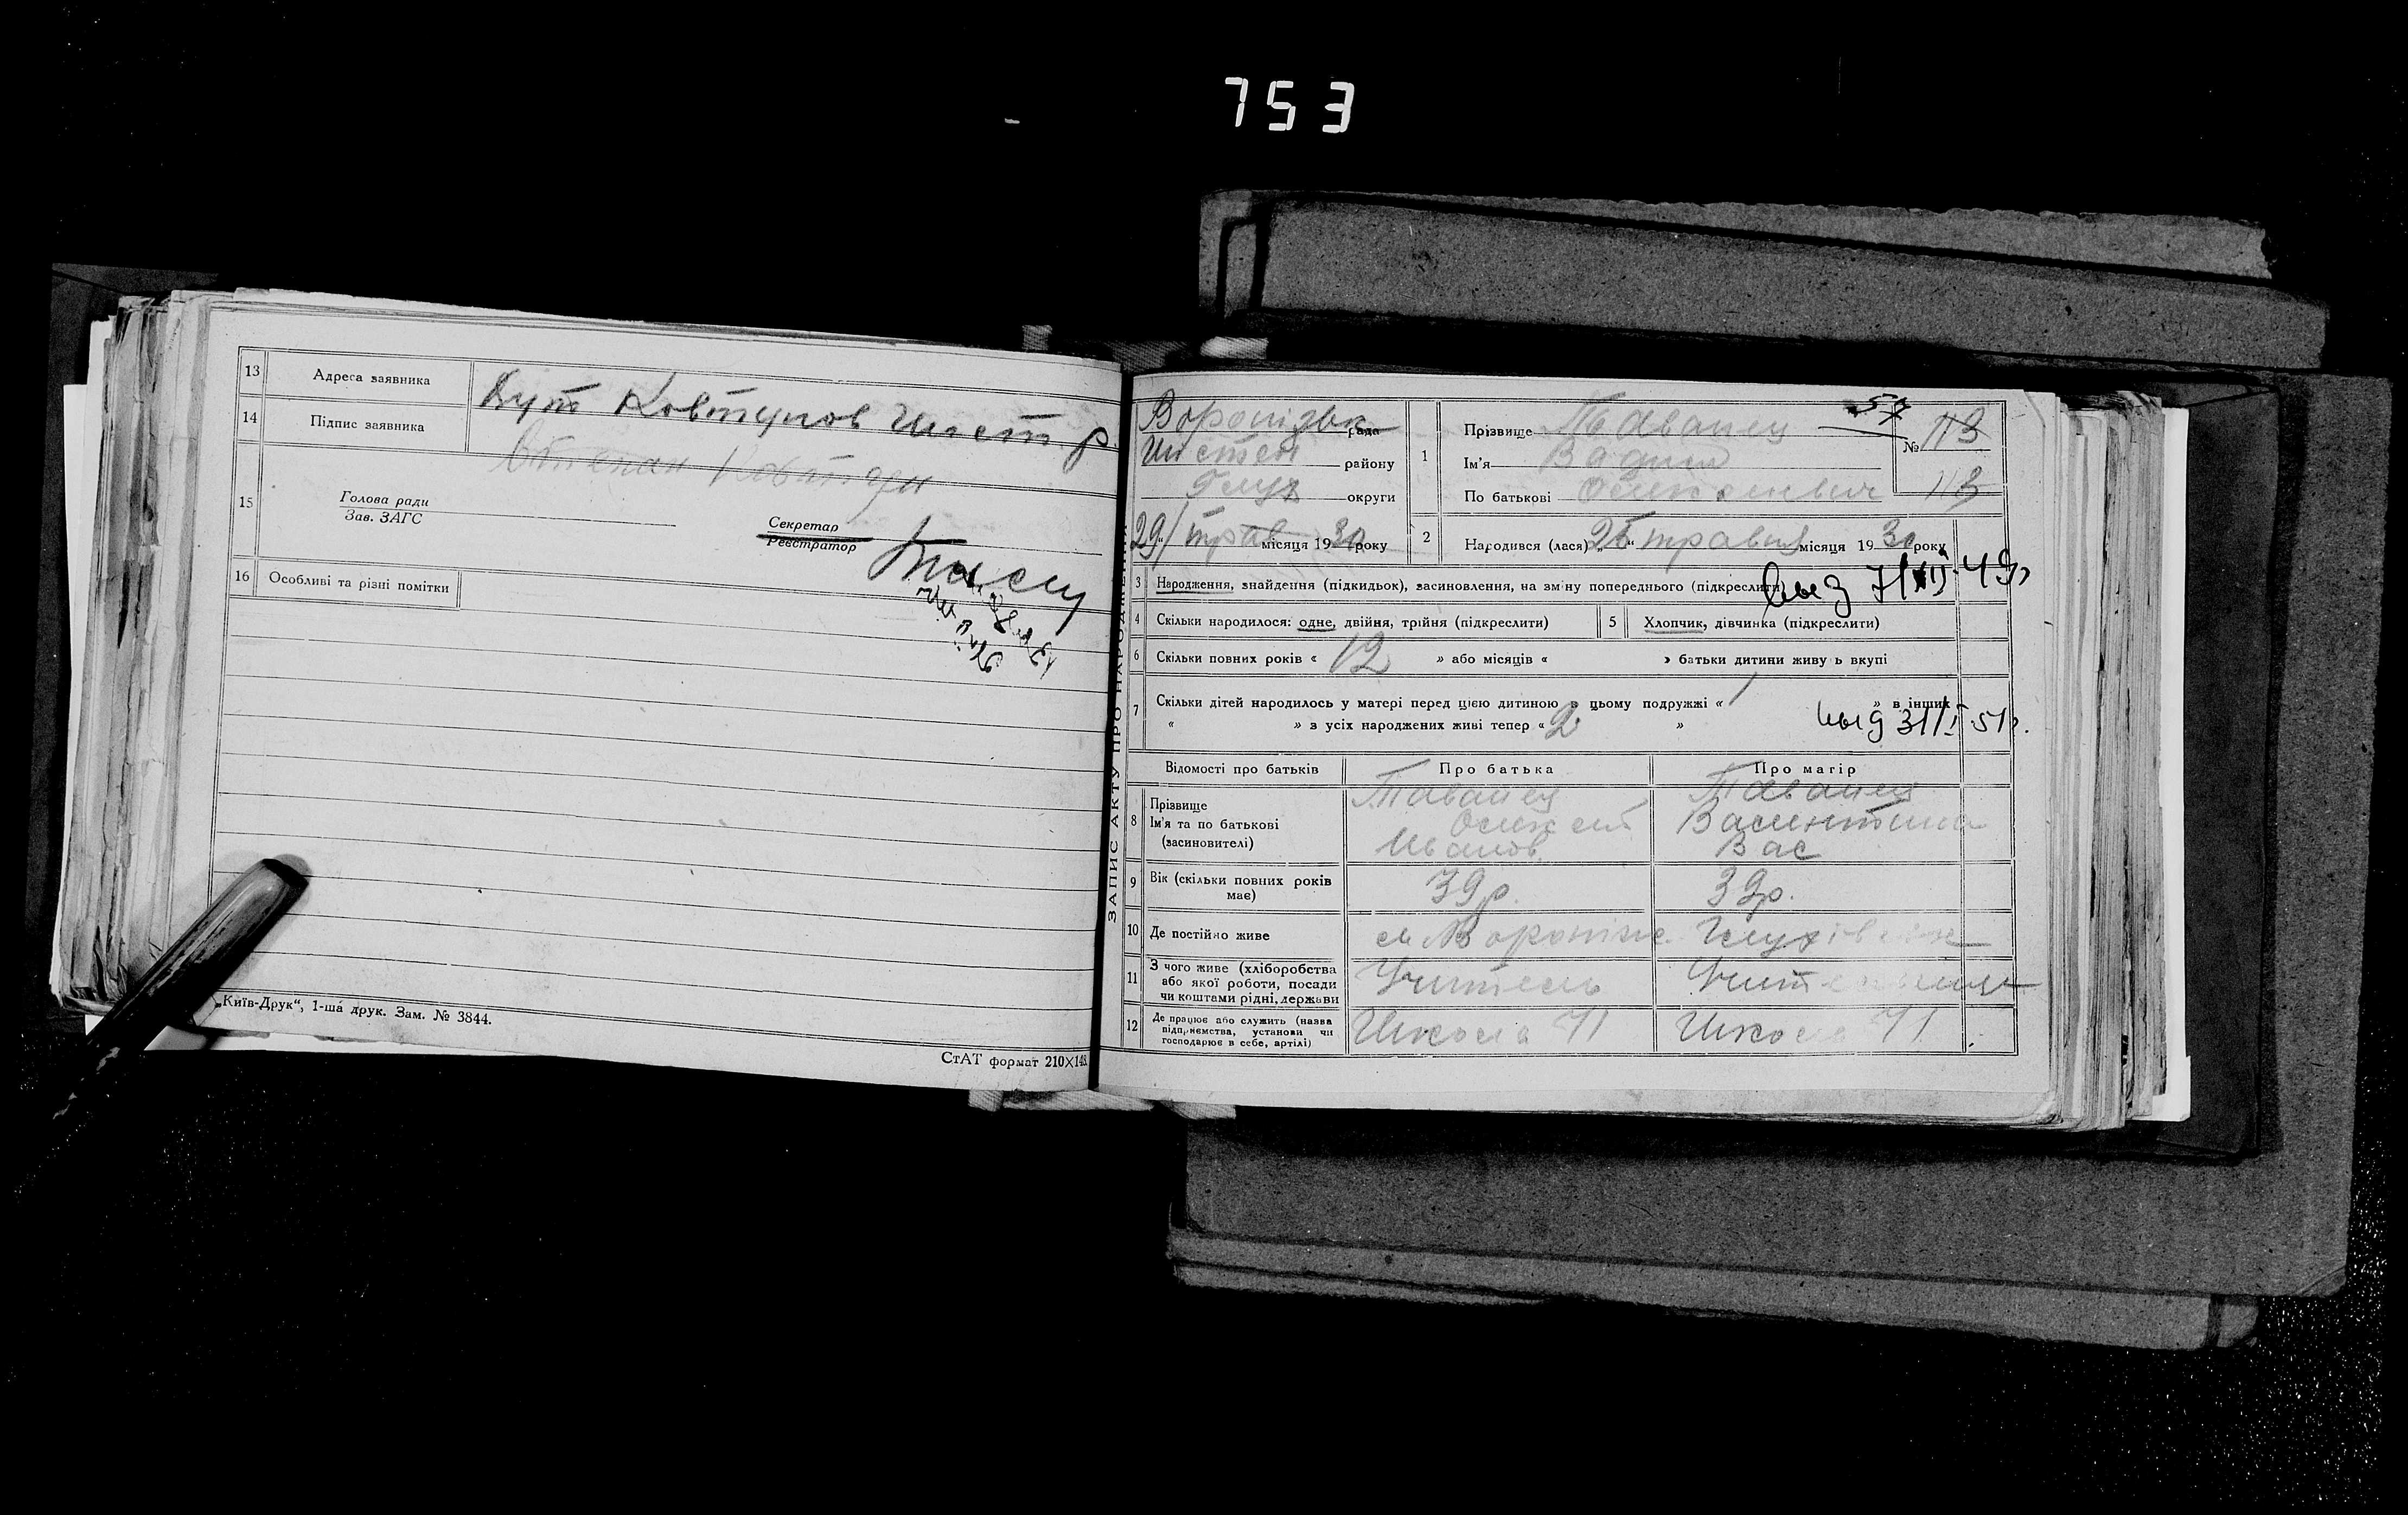 753
13 Адреса заявника
Хут Ковтунов Шист р
14 Підпис заявника
Степан Ковтун
15 Голова ради
Зав. ЗАГС
Секретар
Реєстратор
16 Особливі та різні помітки
„Київ-Друк“, 1-ша друк. Зам. № 3844.
СтАТ формат 210X148.
ЗАПИС АКТУ ПРО НАРОДЖЕННЯ
Вороніжск рада
району
Глух округи
29 трав місяця 1930 року
1 Прізвище Таванец
Ім'я Вадим
По батькові
57
№ 113
113
2 Народився (лася) „26“ травня місяця 1930 року
3 Народження, знайдення (підкидьок), засиновлення, на зміну попереднього (підкреслити)
4 Скільки народилося: одне, двійня, трійня (підкреслити)
5 Хлопчик, дівчинка (підкреслити)
6 Скільки повних років « 12 » або місяців « » батьки дитини живу ь вкупі
7 Скільки дітей народилось у матері перед цією дитиною в цьому подружжі « 1 » в інших
« » з усіх народжених живі тепер « 2 »
31/I 51г.
Відомості про батьків Про батька Про матір
8 Прізвище
Ім'я та по батькові
(засиновителі)
Таванец
Иванов
Таванец
Валентина
Вас
9 Вік (скільки повних років
має)
39р. 39р.
10 Де постійно живе
м Вороніж Глухівськ
11 З чого живе (хліборобства
або якої роботи, посади
чи коштами рідні, держави
Учитель Учителниця
12 Де працює або служить (назва
підприємства, установи чи
господарює в себе, артілі)
Школа Школа